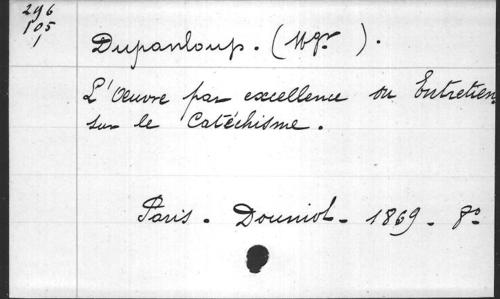 296
105
1
Dupanloup. (Mgr ).
L'Œuvre par excellence ou Entretien
sur le Catéchisme.
Paris. Douniol. 1869. 8º